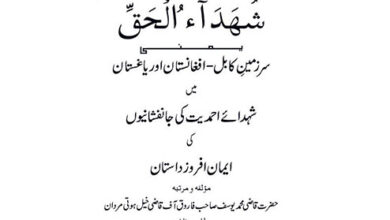 شُهَدَآءُ الْحَقِّ
یعنی
سرزمینِ کابل - افغانستان اور یاغستان
میں
شہدائے احمدیت کی جانفشانیوں
کی
ایمان افروز داستان
مؤلفہ و مرتبہ
حضرت قاضی محمد یوسف صاحب فاروقی آف قاضی خیل ہوتی مردان